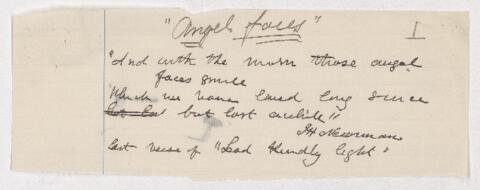 "Angel faces"
I
"And with the morn those angel
faces smile
Which we have loved long since
but lost awhile"
JH Newman
last verse of "Lead Kindly light"